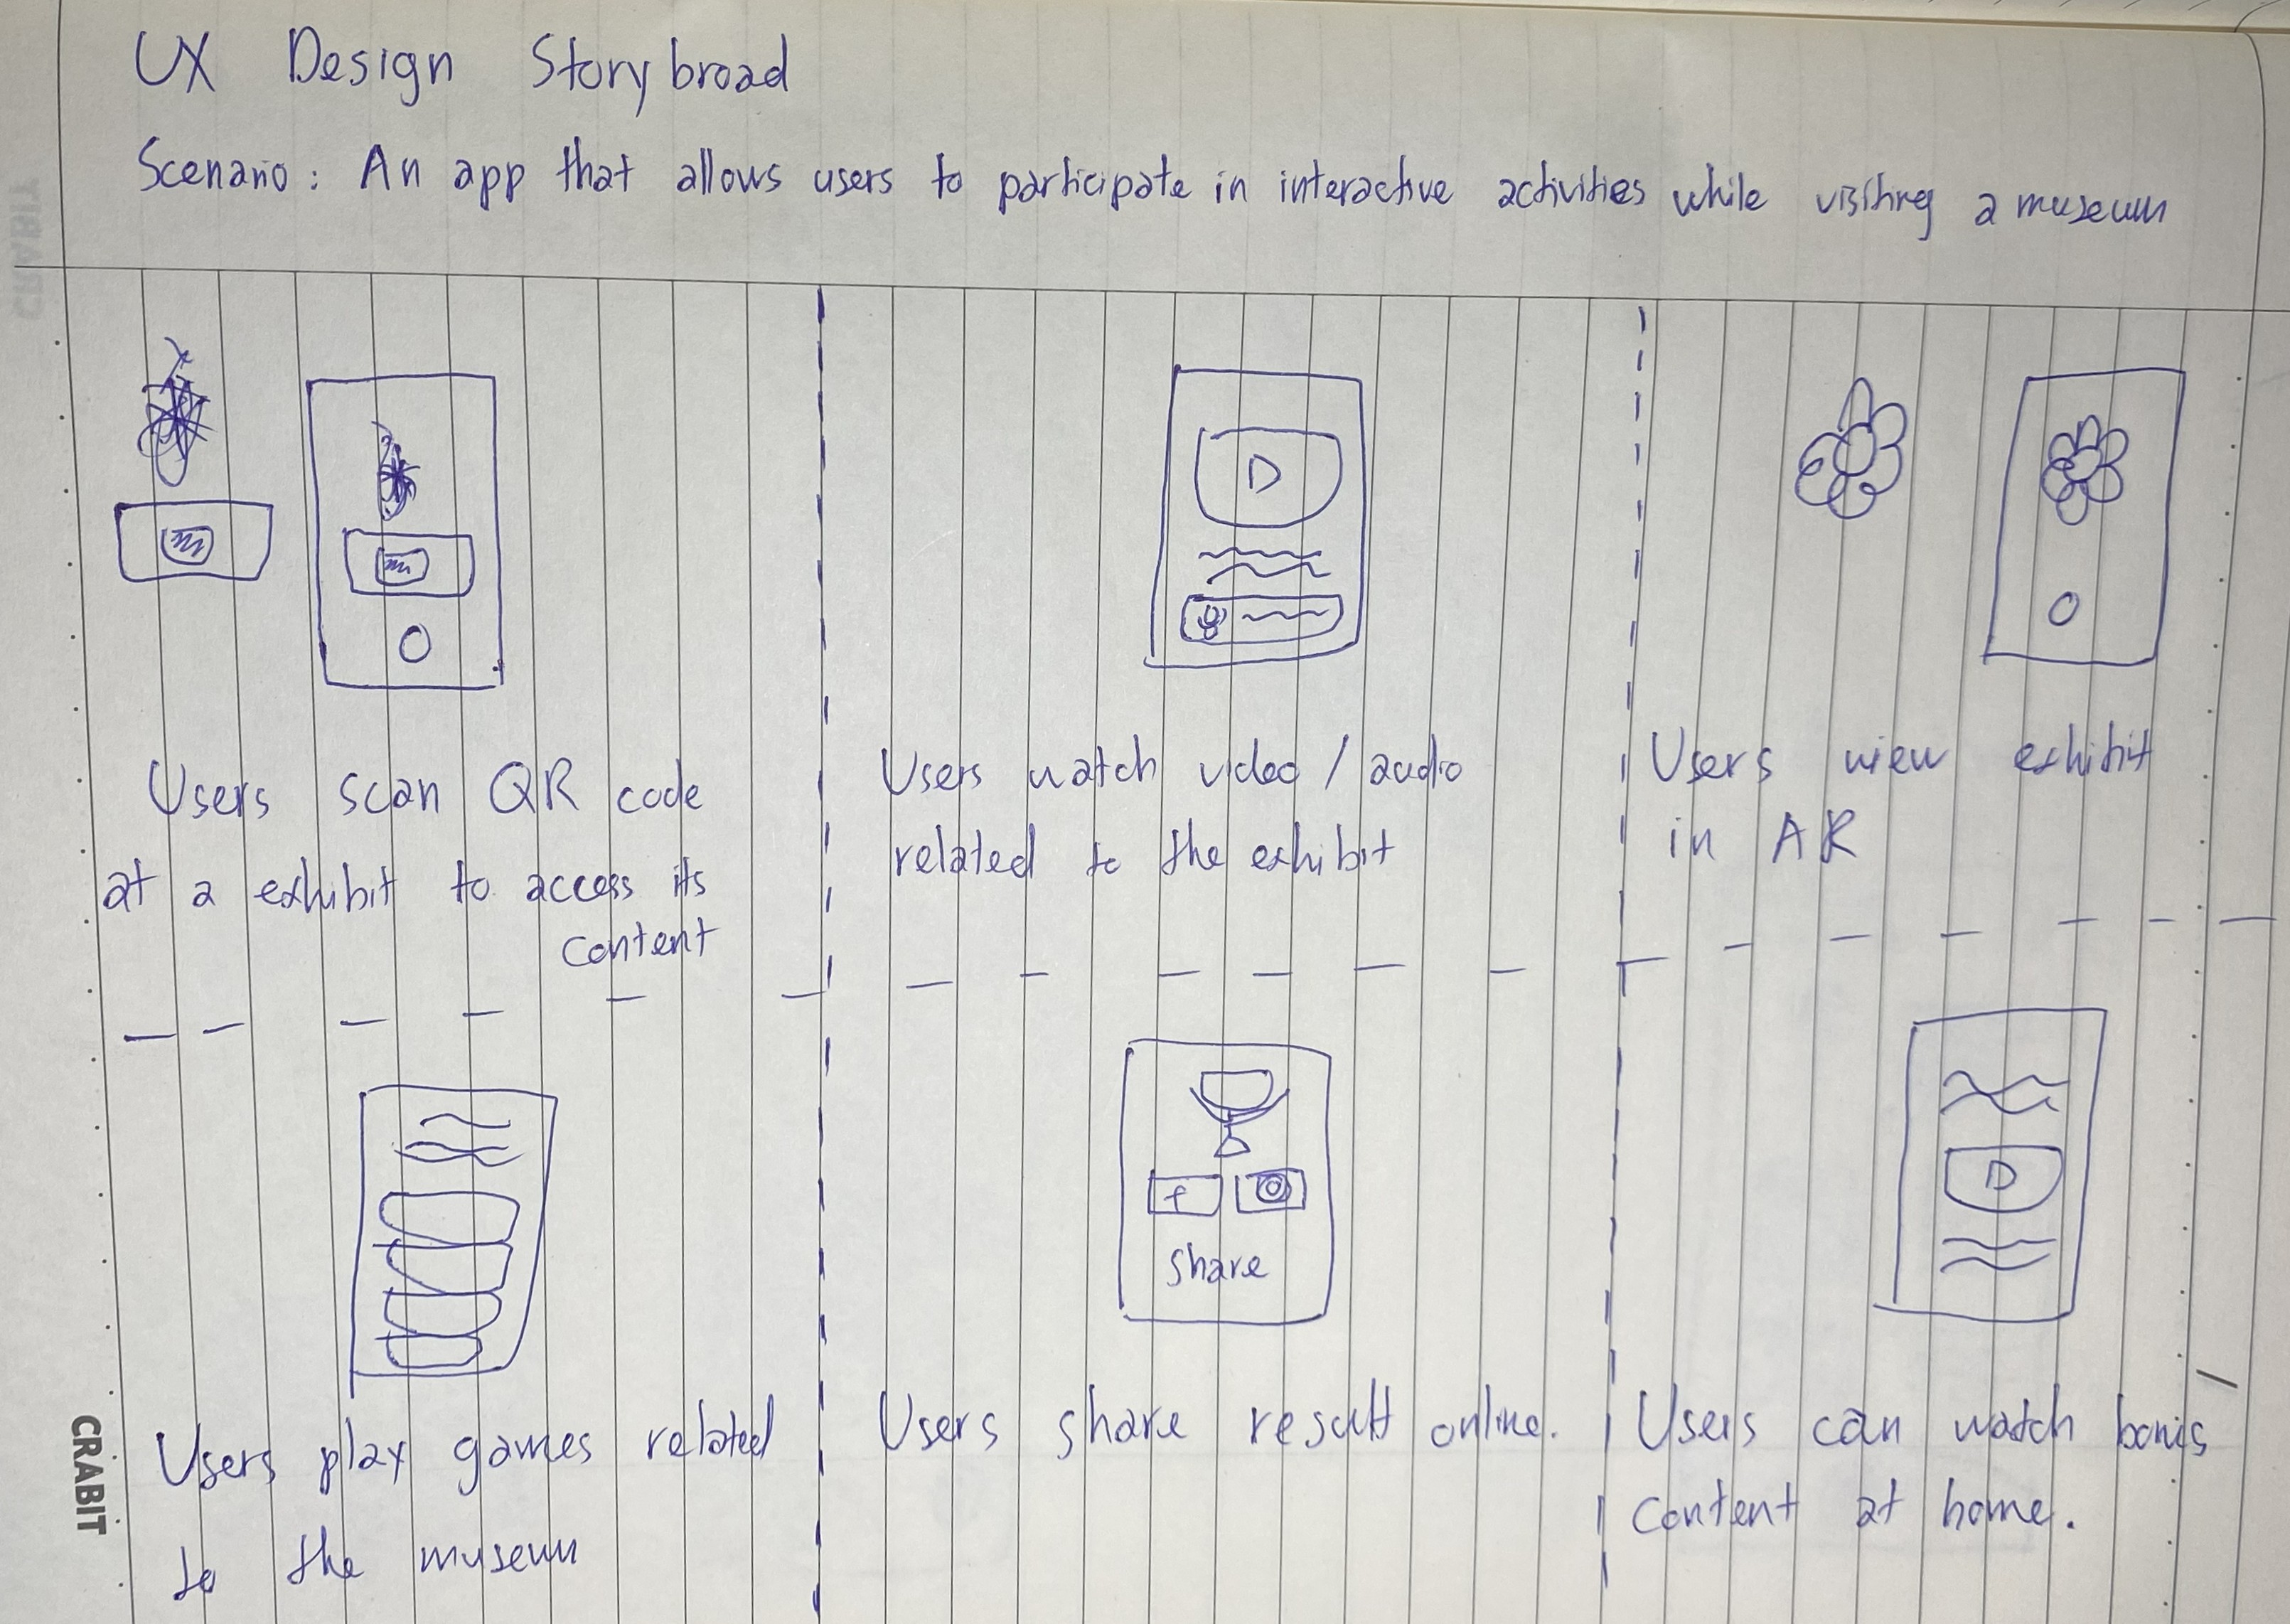 UX Design Storybroad
Scenario: An app that allows users to participate in interactive activities while visiting a museum
Users scan QR code
at a exhibit to access its
content
Users watch video / audio
related to the exhibit
Users view exhibit
in AR
Users play games related
to the museum
f
share
Users share result online.
Users can watch bonus
content at home.
CRABIT
CRABIT